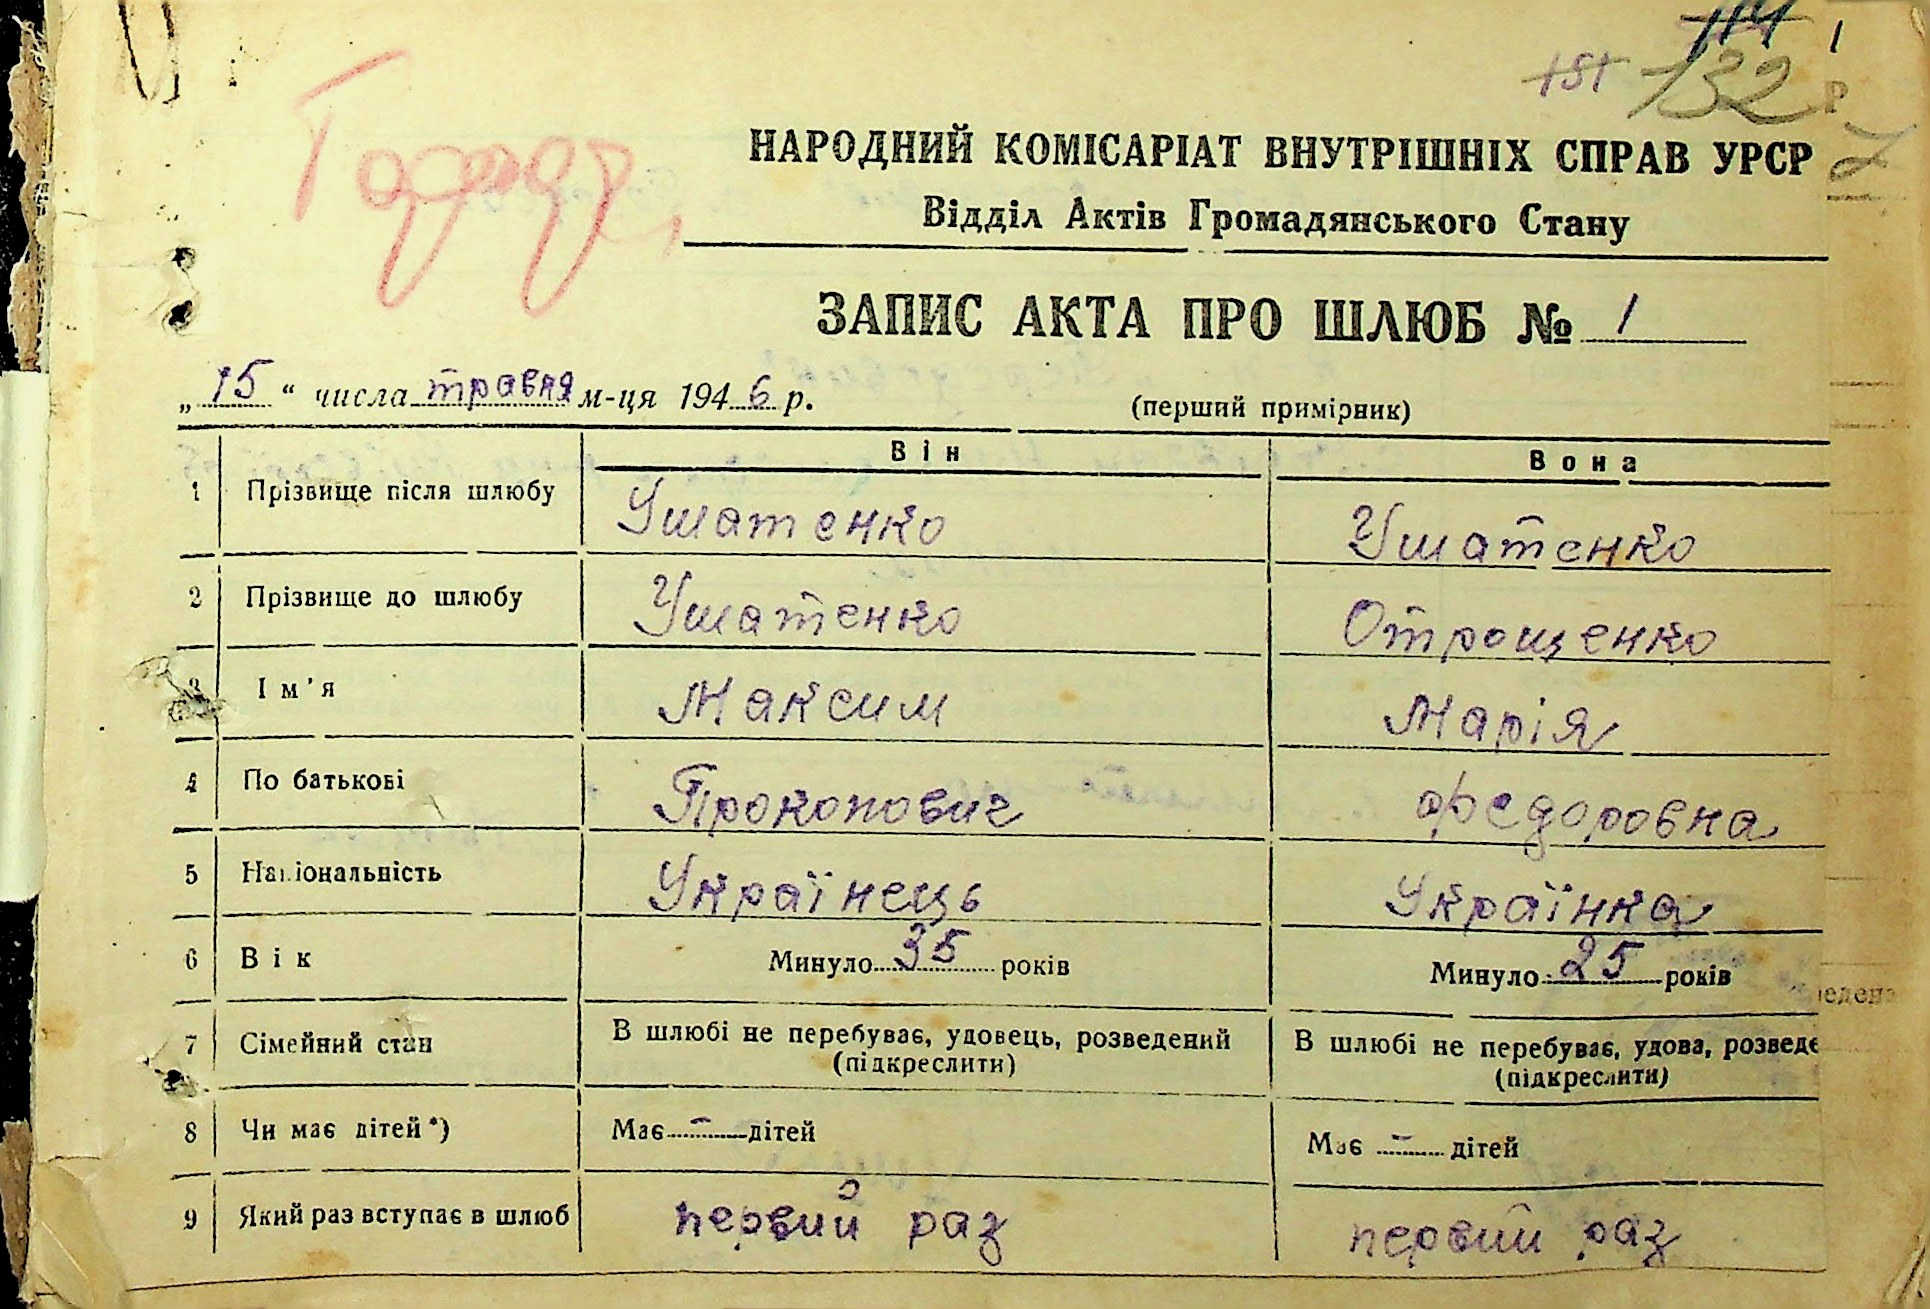 114 1
151 132
НАРОДНИЙ КОМІСАРІАТ ВНУТРІШНІХ СПРАВ УРСР
Відділ Актів Громадянського Стану
ЗАПИС АКТА ПРО ШЛЮБ № 1
„15“ числа травня м-ця 1946 р.
(перший примірник)
Він Вона
1 Прізвище після шлюбу Ушатенко Ушатенко
2 Прізвище до шлюбу Ушатенко Отрощенко
3 Ім'я Максим Марія
4 По батькові Прокопович Федоровна
5 Національність Українець Українка
6 Вік Минуло 35 років Минуло 25 років
7 Сімейний стан В шлюбі не перебуває, удовець, розведений В шлюбі не перебуває, удова, розведе
(підкреслити) (підкреслити)
8 Чи має дітей*) Має - дітей Має - дітей
9 Який раз вступає в шлюб первий раз первий раз